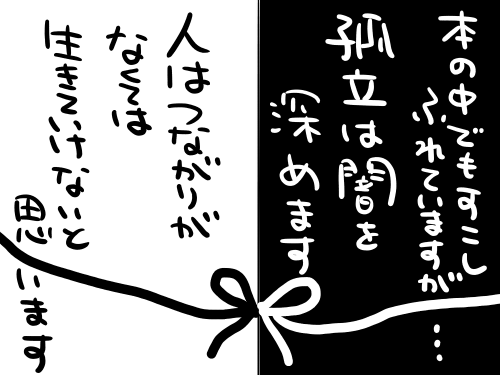 本の中でもすこし
ふれていますが…
孤立は闇を
深めます
人はつながりが
なくては
生きていけないと
思います